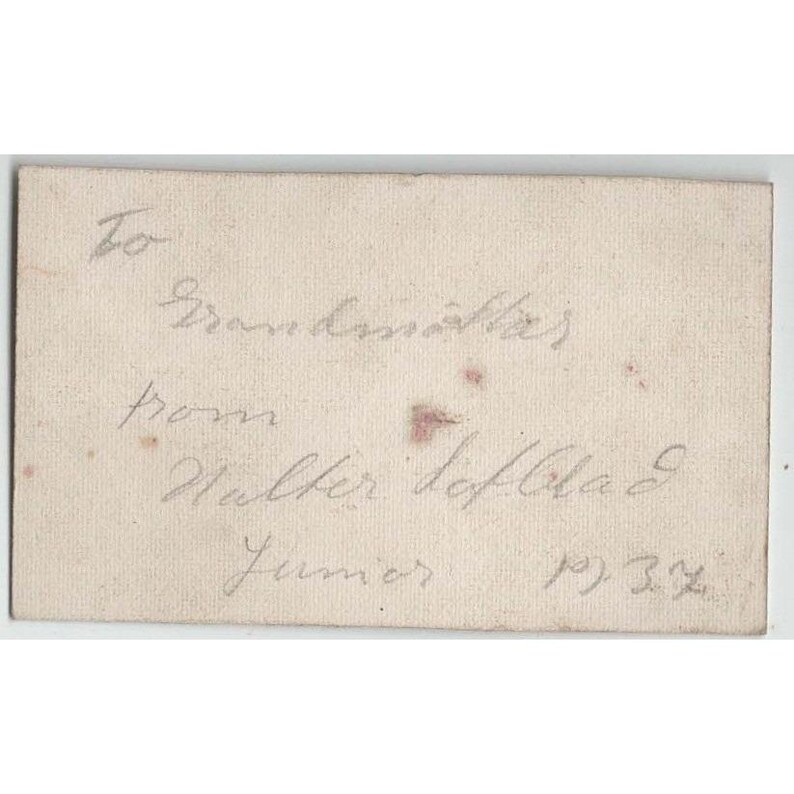 To
Grandmother
from
Walter Lofblad
Junior 1937